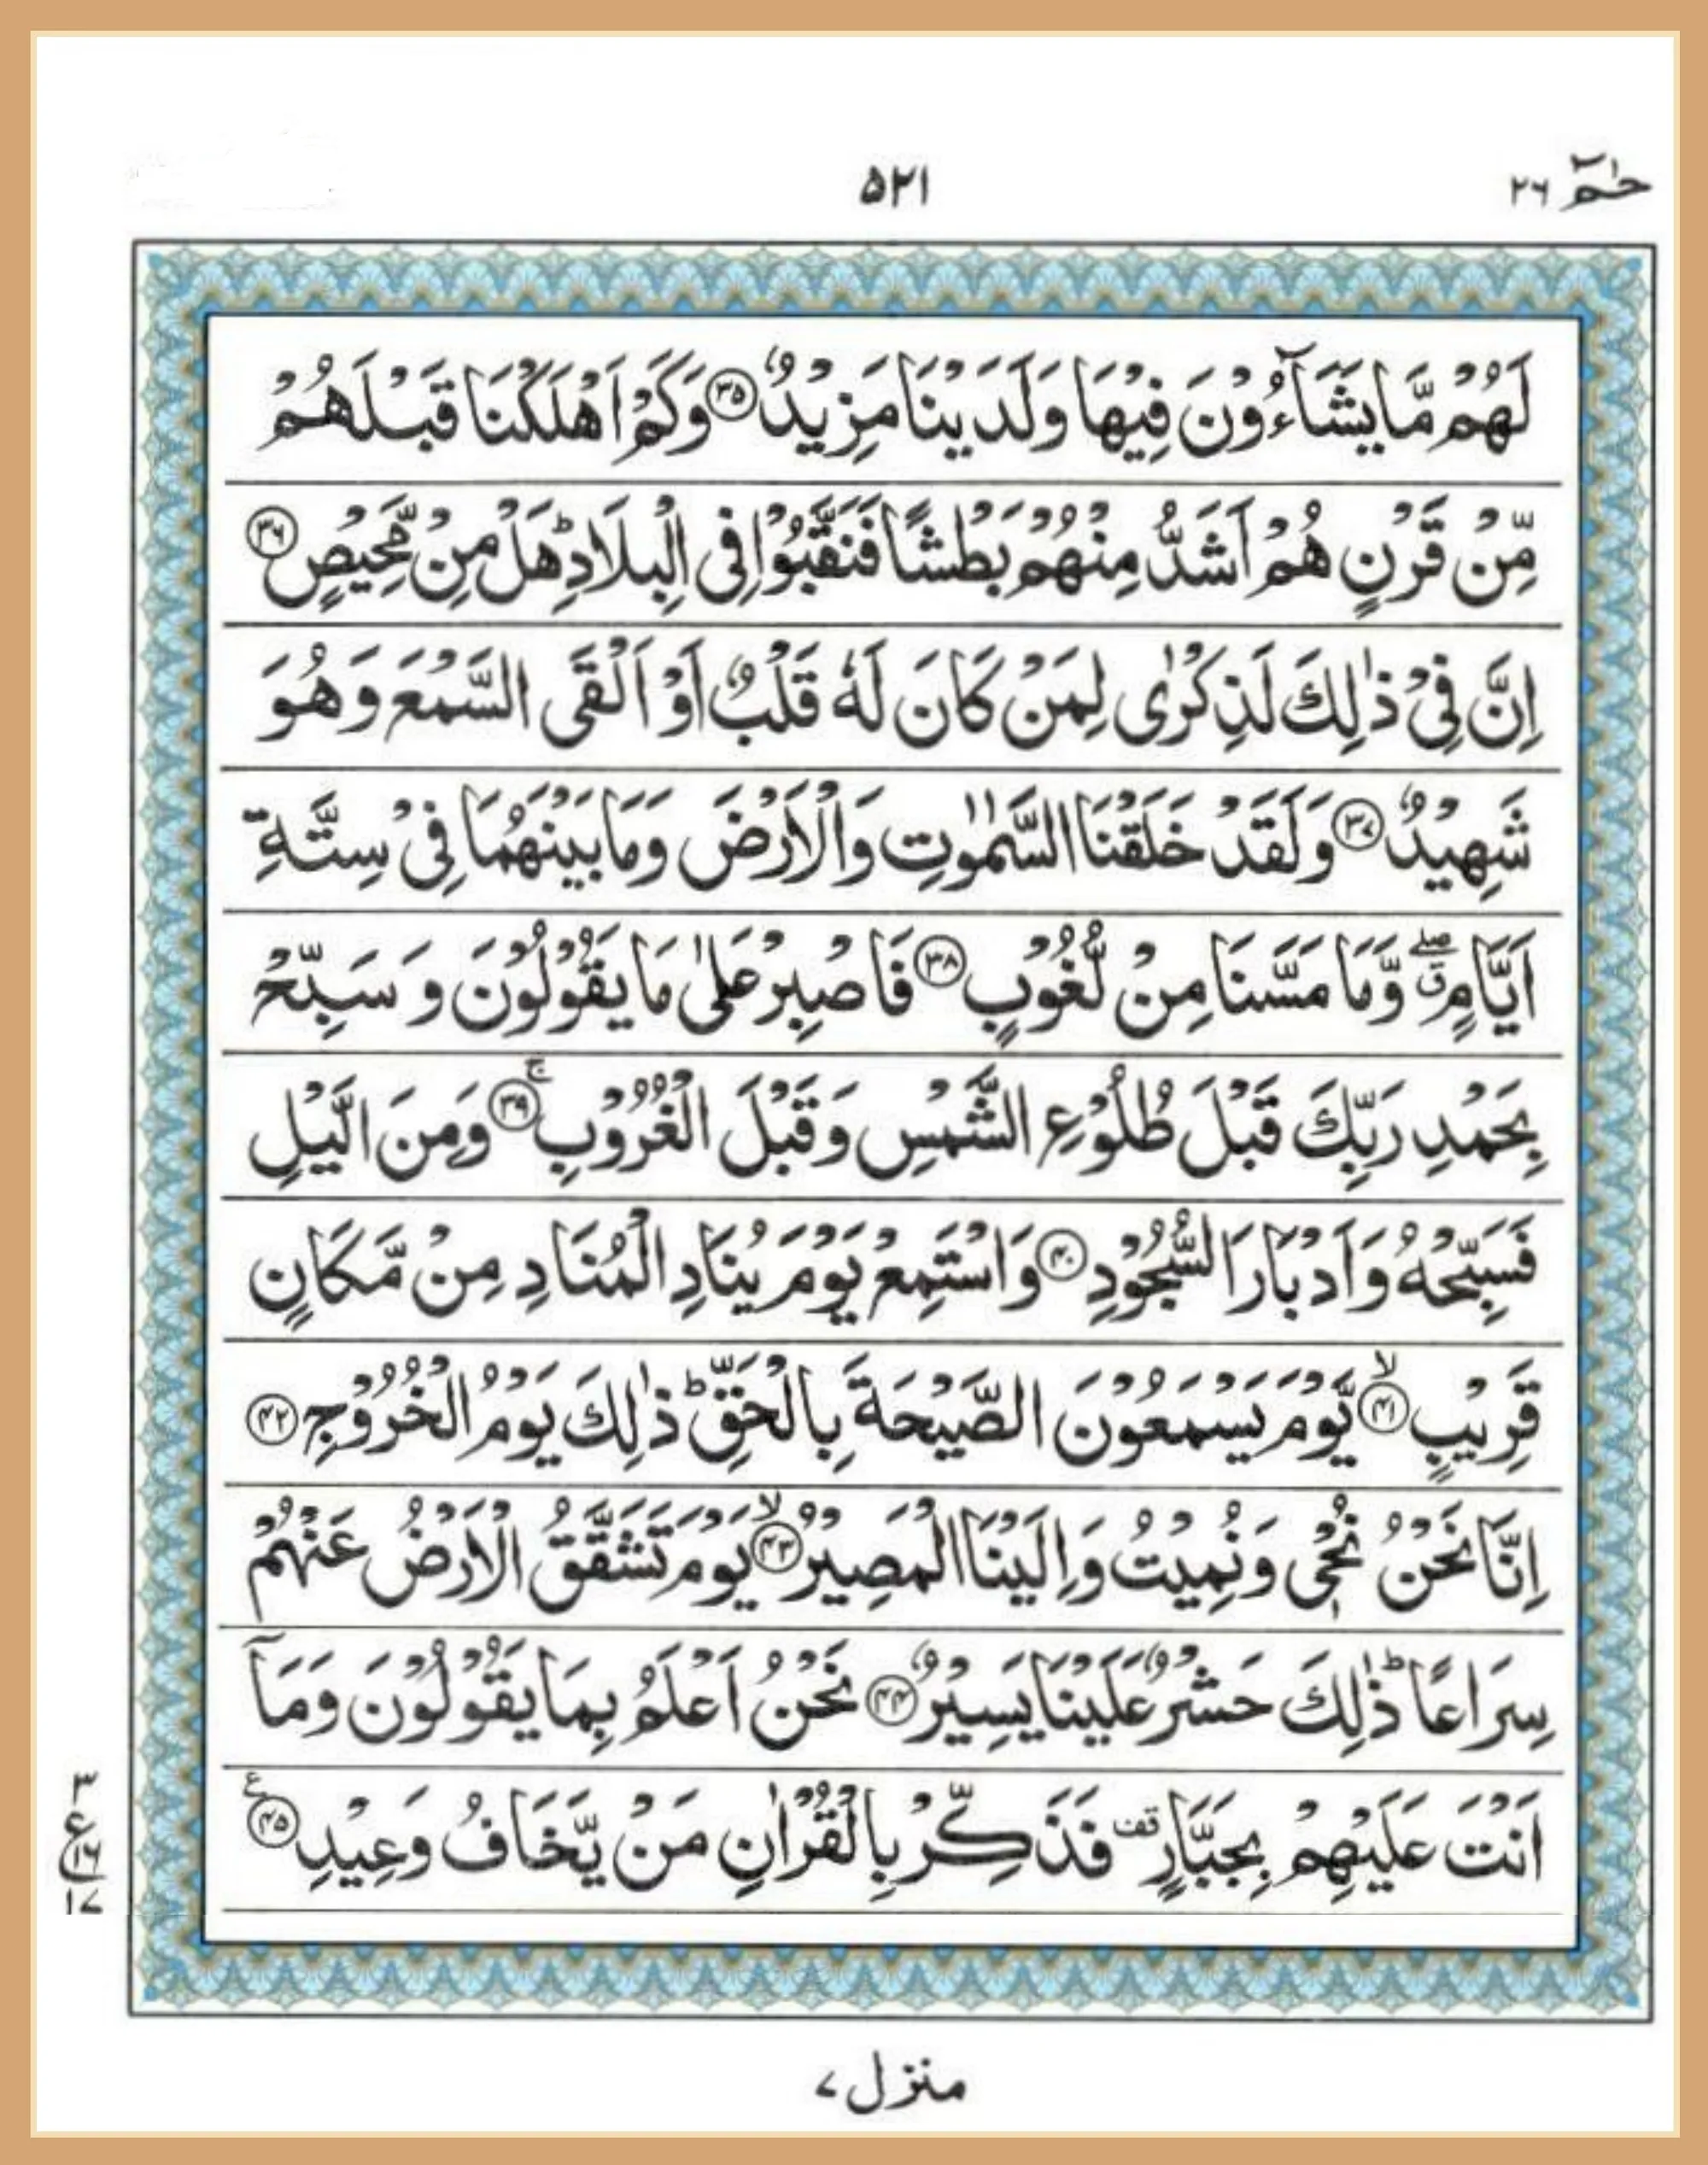 حٰمٓ ٢٦
٥٢١
لَهُمْ مَّا يَشَآءُوْنَ فِيْهَا وَلَدَيْنَا مَزِيْدٌ ﴿٣٥﴾ وَكَمْ اَهْلَكْنَا قَبْلَهُمْ
مِّنْ قَرْنٍ هُمْ اَشَدُّ مِنْهُمْ بَطْشًا فَنَقَّبُوْا فِى الْبِلَادِ ؕ هَلْ مِنْ مَّحِيْصٍ ﴿٣٦﴾
اِنَّ فِىْ ذٰلِكَ لَذِكْرٰى لِمَنْ كَانَ لَهٗ قَلْبٌ اَوْ اَلْقَى السَّمْعَ وَهُوَ
شَهِيْدٌ ﴿٣٧﴾ وَلَقَدْ خَلَقْنَا السَّمٰوٰتِ وَالْاَرْضَ وَمَا بَيْنَهُمَا فِىْ سِتَّةِ
اَيَّامٍ ۖ ق وَّمَا مَسَّنَا مِنْ لُّغُوْبٍ ﴿٣٨﴾ فَاصْبِرْ عَلٰى مَا يَقُوْلُوْنَ وَسَبِّحْ
بِحَمْدِ رَبِّكَ قَبْلَ طُلُوْعِ الشَّمْسِ وَقَبْلَ الْغُرُوْبِ ۚ ﴿٣٩﴾ وَمِنَ الَّيْلِ
فَسَبِّحْهُ وَاَدْبَارَ السُّجُوْدِ ﴿٤٠﴾ وَاسْتَمِعْ يَوْمَ يُنَادِ الْمُنَادِ مِنْ مَّكَانٍ
قَرِيْبٍ ۙ ﴿٤١﴾ يَّوْمَ يَسْمَعُوْنَ الصَّيْحَةَ بِالْحَقِّ ؕ ذٰلِكَ يَوْمُ الْخُرُوْجِ ﴿٤٢﴾
اِنَّا نَحْنُ نُحْىٖ وَنُمِيْتُ وَاِلَيْنَا الْمَصِيْرُ ۙ ﴿٤٣﴾ يَوْمَ تَشَقَّقُ الْاَرْضُ عَنْهُمْ
سِرَاعًا ؕ ذٰلِكَ حَشْرٌ عَلَيْنَا يَسِيْرٌ ﴿٤٤﴾ نَحْنُ اَعْلَمُ بِمَا يَقُوْلُوْنَ وَمَآ
اَنْتَ عَلَيْهِمْ بِجَبَّارٍ قف فَذَكِّرْ بِالْقُرْاٰنِ مَنْ يَّخَافُ وَعِيْدِ ﴿٤٥﴾ ع
٣
ع
١٦
١٧
منزل ٧